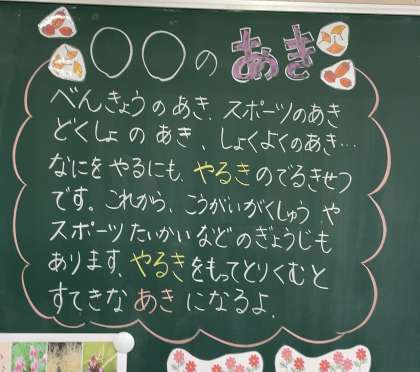 〇〇のあき
べんきょうのあき、スポーツのあき
どくしょのあき、しょくよくのあき…
なにをやるにも、やるきのでるきせつ
です。これから、こうがいがくしゅうや
スポーツたいかいなどのぎょうじも
あります、やるきをもってとりくむと
すてきなあきになるよ。